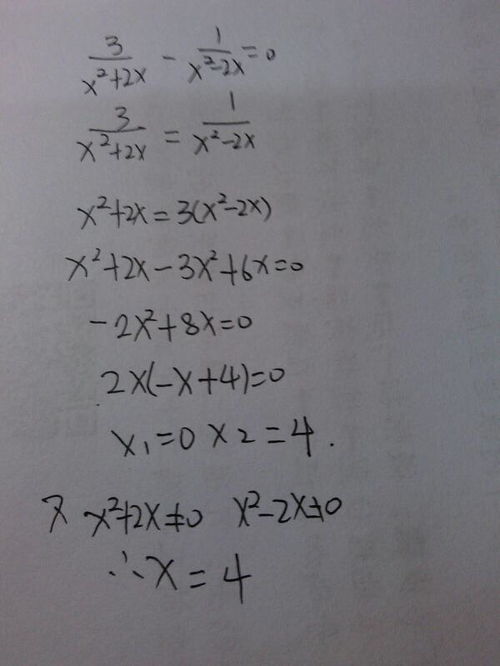 3/(x²+2x) - 1/(x²-2x) = 0
3/(x²+2x) = 1/(x²-2x)
x²+2x=3(x²-2x)
x²+2x-3x²+6x=0
-2x²+8x=0
2x(-x+4)=0
x₁=0 x2=4.
又 x²+2x≠0 x²-2x≠0
∴x=4